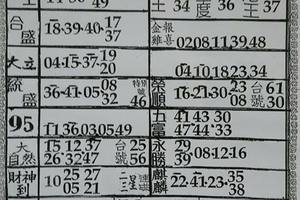 土 34 36 王 37
合盛 18·39·40·17 37
金報雞喜 02 08,11,39,48
大立 04·15·37·19 20
04,10,18,23,34
統盛 36·41·05 08 32 特別號 46
榮順 16·21·30 23 08 台號 61 30
95 11,36,03,05,49
五富 41 43 30 47 44 33
大自然 15 12 37 26 32 47 台號 25 56
永勝 29 39 08·12·16
財神到 10 25 27 05 21 二星
麒麟 22·41·23 35 38